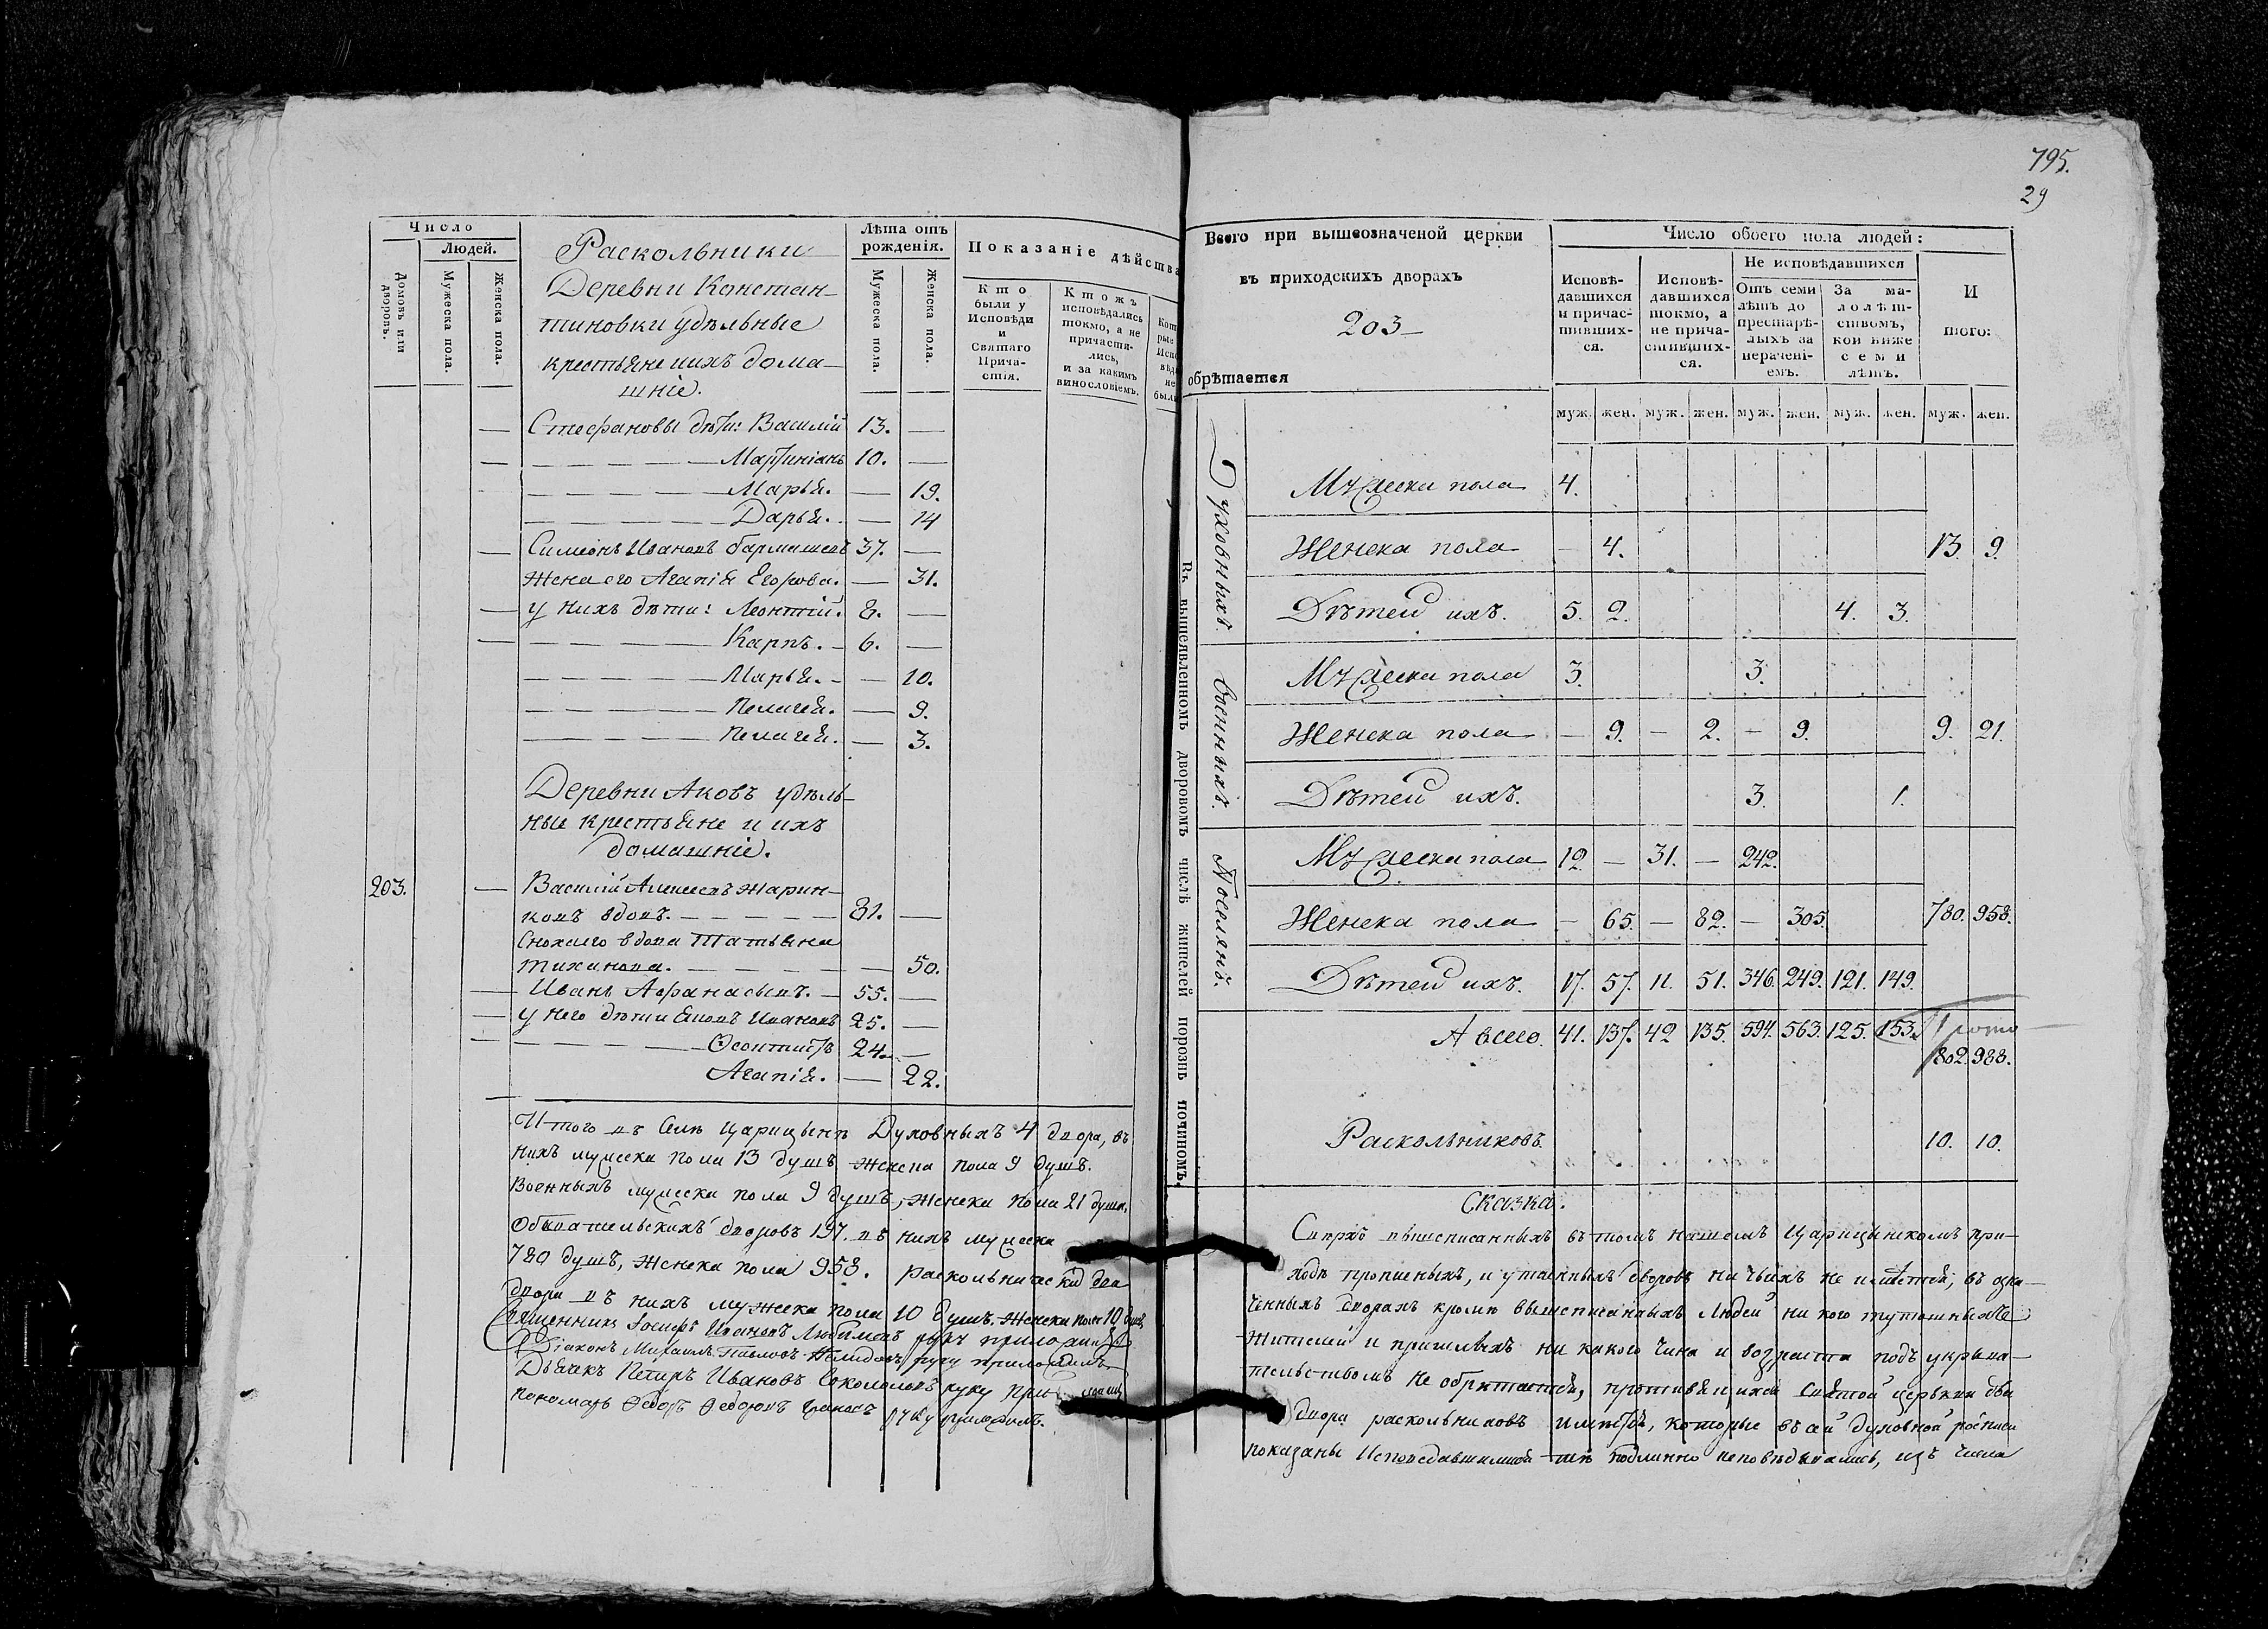 Число
Людей.
Домовъ или дворовъ.
Мужеска пола.
Женска пола.
Раскольники
Деревни Констан-
тиновки удѣльные
крестьяне и ихъ дома-
шніе.
Лѣта отъ рожденія.
Мужеска пола.
Женска пола.
Показаніе дѣйства
Кто были у Исповѣди и Святаго Прича-стія.
Ктожъ исповѣдались токмо, а не причасти-лись, и за какимъ винословіемъ.
Стефановы дѣти: Василій 13. —
Мартиніанъ 10. —
Марья. — 19.
Дарья. — 14
Симеонъ Ивановъ 37. —
Жена его Агапія Егорова. — 31.
у нихъ дѣти: Леонтій. 8. —
Карпъ. 6. —
Марья. — 10.
Пелагея. — 9.
Пелагея. — 3.
Деревни Аковъ удѣль-
ные крестьяне и ихъ
домашніе.
203. Василій Алексеевъ Жарин-
ковъ вдовъ. 81. —
Сноха его вдова Татьяна
Тиханова. — 50.
Иванъ Афанасьевъ. 55. —
у него дѣти Ивановъ 25. —
24. —
Агапія. — 22.
Итого въ Селѣ Царицынѣ Духовныхъ 4 двора, въ
нихъ мужеска пола 13 душъ женска пола 9 душъ.
Военныхъ мужеска пола 9 душъ, женска пола 21 душа.
Обывательскихъ дворовъ 197. въ нихъ мужеска
780 душъ, женска пола 958. раскольнически два
двора въ нихъ мужеска пола 10 душъ. женска пола 10 душъ
Священникъ Ивановъ Любимовъ руку приложилъ
Діаконъ Михаилъ Павловъ руку приложилъ
Дьячекъ Петръ Ивановъ Соколовъ руку приложилъ
пономарь Ѳедоръ Ѳедоровъ руку приложилъ.
795.
29
Всего при вышеозначеной церкви
въ приходскихъ дворахъ
203
обрѣтается
Число обоего пола людей:
Исповѣ-давшихся и причас-тивших-ся.
Исповѣ-давшихся токмо, а не прича-стивших-ся.
Не исповѣдавшихся
Отъ семи лѣтъ до престарѣ-лыхъ за нерачені-емъ.
За ма-лолѣт-ствомъ, кои ниже семи лѣтъ.
И того:
муж. жен. муж. жен. муж. жен. муж. жен. муж. жен.
Въ вышеявленномъ дворовомъ числѣ жителей порознь починомъ.
Духовныхъ.
Мужеска пола 4.
Женска пола — 4. 13. 9.
Дѣтей ихъ. 5. 2. 4. 3.
Военныхъ.
Мужеска пола 3. 3.
Женска пола — 9. — 2. — 9. 9. 21.
Дѣтей ихъ. 3. 1.
Поселянъ.
Мужеска пола 12 — 31. — 242.
Женска пола — 65. — 82. — 305. 780. 958.
Дѣтей ихъ. 17. 57. 11. 51. 346. 249. 121. 149.
А всего. 41. 137. 42 135. 594. 563. 125. 153.
802. 988.
Раскольниковъ 10. 10.
Сказка.
Сверхъ вышеписанныхъ въ томъ нашемъ Царицынскомъ при-
ходѣ прописныхъ, и утаенныхъ дворовъ ни чьихъ не имѣется, въ озна-
ченныхъ дворахъ кромѣ вышеписанныхъ людей ни кого тутошныхже
жителей и пришлыхъ ни какого чина и возраста подъ укрыва-
тельствомъ не обрѣтается, противящихся святой церкви два
двора раскольниковъ имѣется, которые въ сей духовной росписи
показаны Исповедавшимися тѣ подлинно исповѣдывались, изъ числа